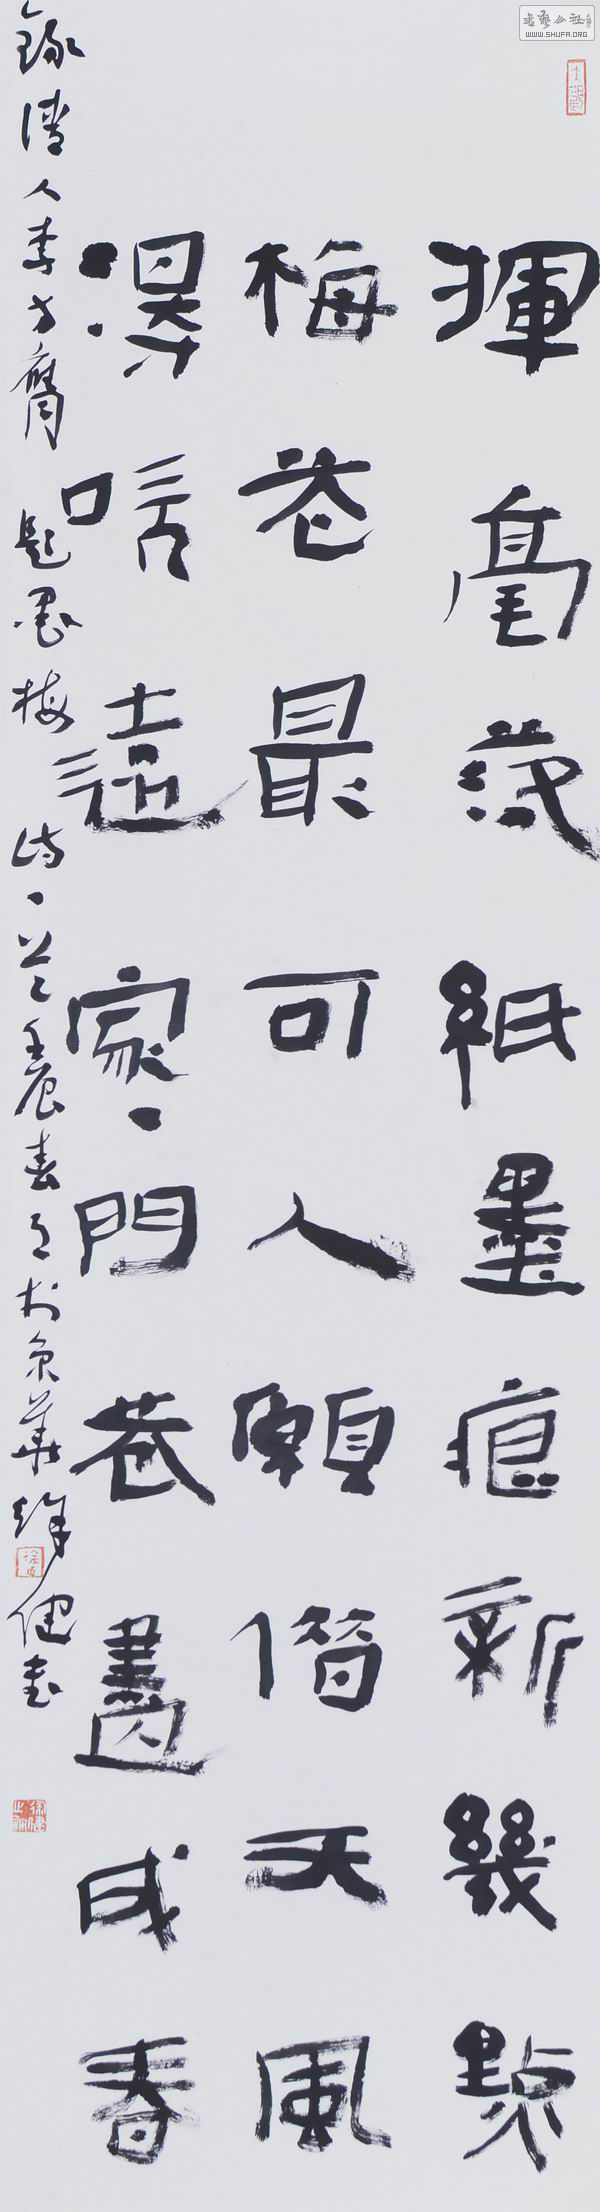 書藝公社
WWW.SHUFA.ORG
揮毫落紙墨痕新幾點
梅花最可人願借天風
得吹遠家、門巷盡成春
錄清人李方膺題墨梅詩一首壬辰春月於京華徐健書